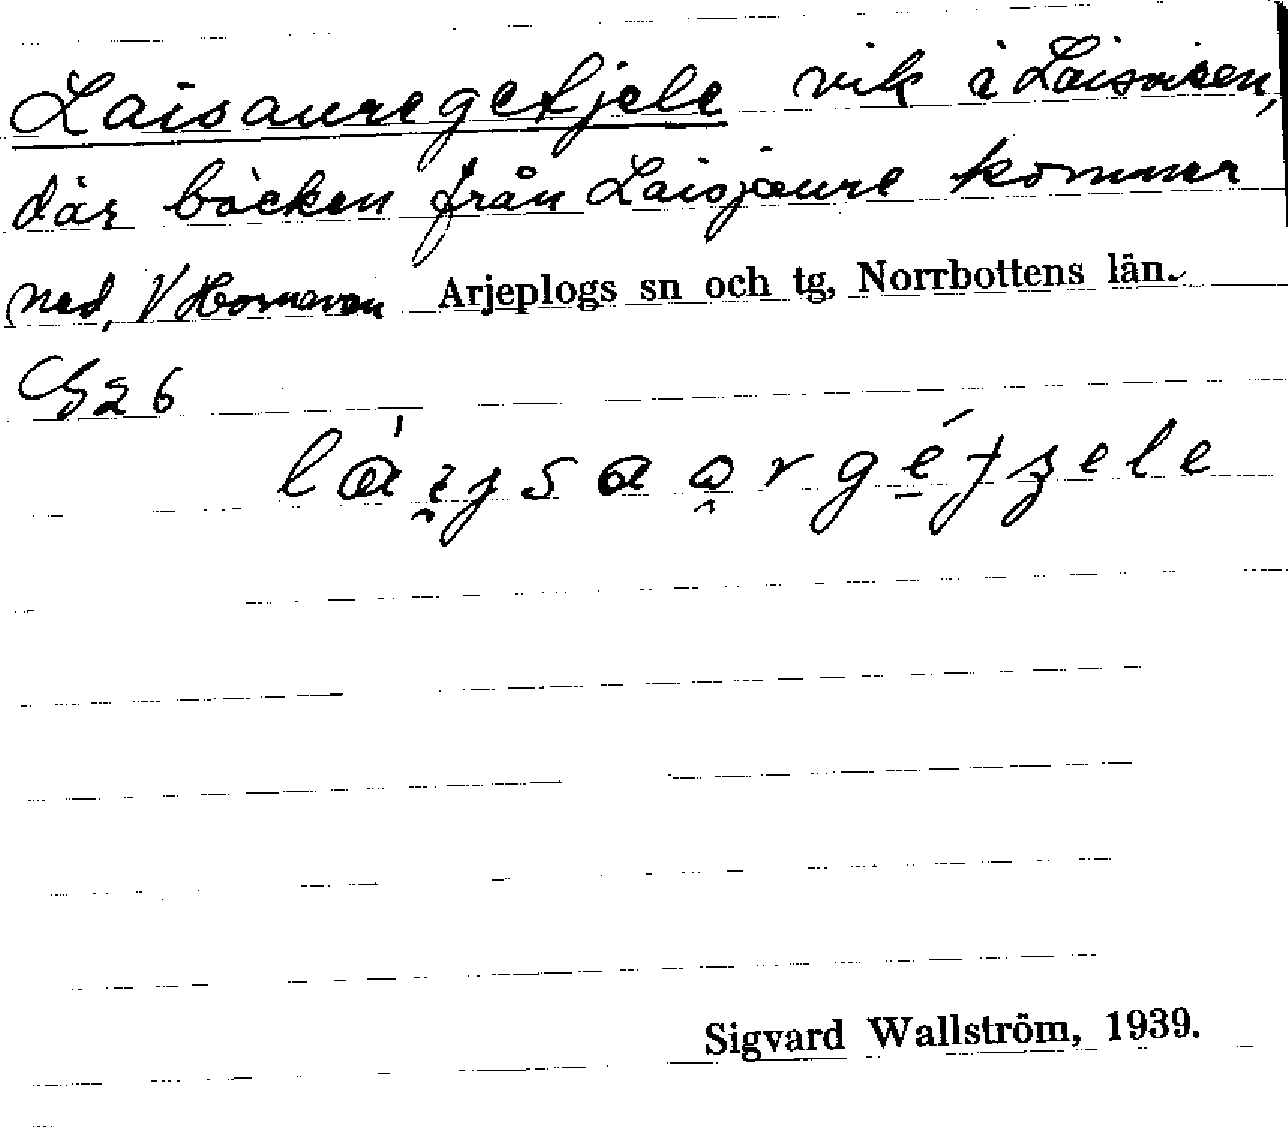 Laisauregetjele vik i Laisauren,
där bäcken från Laisjaure kommer
ned, V Hornavan Arjeplogs sn och tg, Norrbottens län.
Sigvard Wallström, 1939.